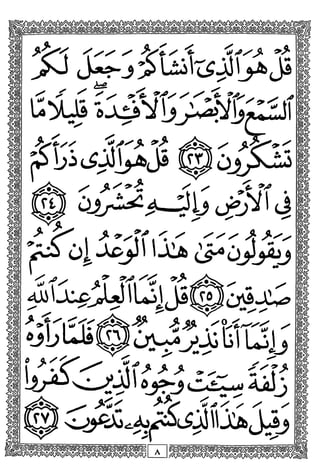 قُلْ هُوَ ٱلَّذِىٓ أَنشَأَكُمْ وَجَعَلَ لَكُمُ
ٱلسَّمْعَ وَٱلْأَبْصَٰرَ وَٱلْأَفْـِٔدَةَ ۖ قَلِيلًا مَّا
تَشْكُرُونَ ٢٣ قُلْ هُوَ ٱلَّذِى ذَرَأَكُمْ
فِى ٱلْأَرْضِ وَإِلَيْهِ تُحْشَرُونَ ٢٤
وَيَقُولُونَ مَتَىٰ هَٰذَا ٱلْوَعْدُ إِن كُنتُمْ
صَٰدِقِينَ ٢٥ قُلْ إِنَّمَا ٱلْعِلْمُ عِندَ ٱللَّهِ
وَإِنَّمَآ أَنَا۠ نَذِيرٌ مُّبِينٌ ٢٦ فَلَمَّا رَأَوْهُ
زُلْفَةً سِيٓـَٔتْ وُجُوهُ ٱلَّذِينَ كَفَرُوا۟
وَقِيلَ هَٰذَا ٱلَّذِى كُنتُم بِهِۦ تَدَّعُونَ ٢٧
٨